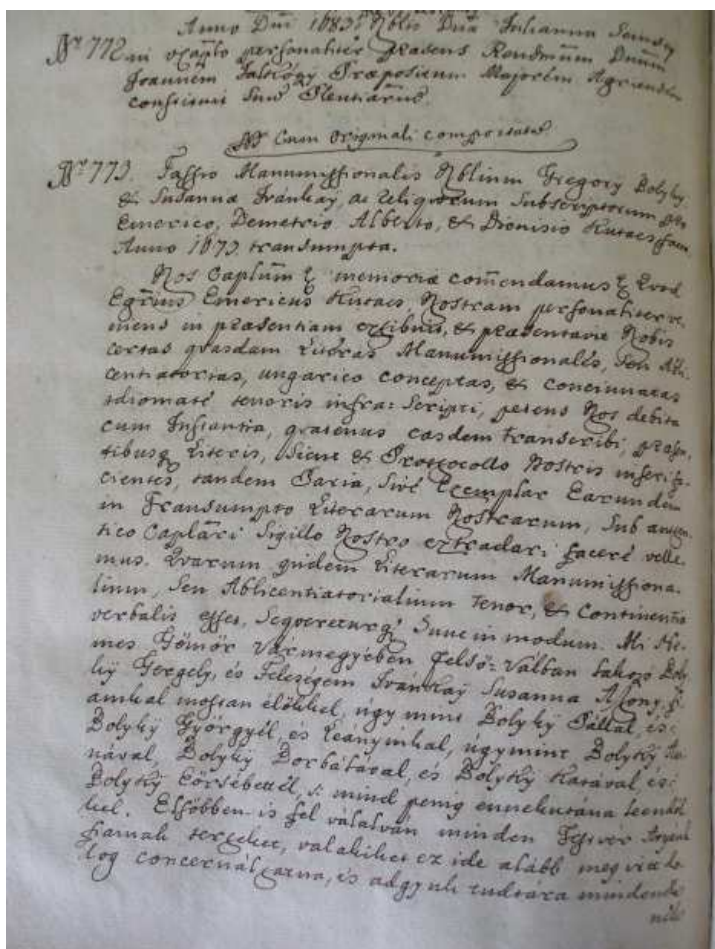 Anno Dni 1683. Nblis Dna Julianna
Nr. 772. in oxaplo personaliter praesens Rendmum Dnum
Joannem Praepositum Majorem Agriensem
constituit Suu Plentiarium
NB Cum Originali comportata
Nr. 773. Fassio Manumissionalis Nblium Gregory Bolyky
& Susannae Ivánkay, ac Religiorum Subscriptorum pro
Emerico, Demetrio Alberto, & Dionisio Kutassy fam.
Anno 1673. transumpta.
Nos Captum & memoriae comendamus & Quod
Egrius Emericus Kutaes Nostram personaliter ve-
niens in praesentiam exhibuit, & praesentavit Nobis
certas quasdam Literas Manumissionales, seu Abli-
centiatorias, ungarico conceptas, & concinnatas
idiomate tenoris infra: Scripti, petens Nos debita
cum Instantia, quatenus easdem transcribi, praesen-
tibusq Literis, sicut & Prottocollo Nostris inseri fa-
cientes, tandem Paria, sive Exemplar Earundem
in Transumpto Literarum Nostrarum, sub authen-
tico Caplari Sigillo Nostro extradari facere velle-
mus. Quarum quidem Literarum Manumissiona-
lium, seu Ablicentiatorialium tenor, & Continentia
verbalis esset, Sequereturq; Hunc in modum. Mi Ne-
mes Gömör Vármegyében Felső-Válban lakozó Boly-
ky Gergely, és Feleségem Ivánkay Susanna Aszony, Fi-
aimkal mostan élőkkel, úgy mint Bolyky Pállal, és
Bolyky Györgyél, és Leányinkal, ugymint Bolyky
nával, Bolyky Borbálával, és Bolyky Katával, és
Bolyky Eörsébettél, s: mind penig ennekutánna leendők
kel. Elsőbben is fel válalván minden Testvér Atyank
fiainak terheket, valakiket ez ide alább meg irt do
log concernálhatna, és adgyuk tudtára mindenek-
nek